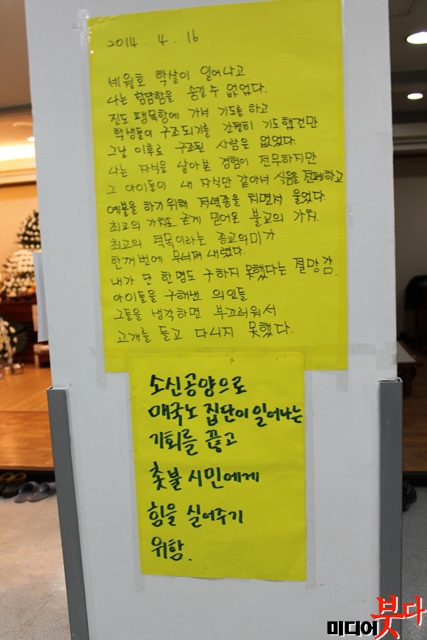 2014. 4. 16
세월호 학살이 일어나고
나는 참담함을 숨길 수 없었다.
진도 팽목항에 가서 기도를 하고
학생들이 구조되기를 간절히 기도했건만
그날 이후로 구조된 사람은 없었다.
나는 자식을 낳아본 경험이 전무하지만
그 아이들이 내 자식만 같아서 식음을 전폐하고
예불을 하기 위해 저녁종을 치면서 울었다.
최고의 가치로 굳게 믿어온 불교의 가치
최고의 덕목이라는 종교의미가
한꺼번에 무너져 내렸다.
내가 단 한명도 구하지 못했다는 절망감.
아이들을 구해낸 의인들
그들을 생각하면 부끄러워서
고개를 들고 다니지 못했다.
소신공양으로
매국노 집단이 일어나는
기회를 끊고
촛불 시민에게
힘을 실어주기
위함.
미디어 붓다